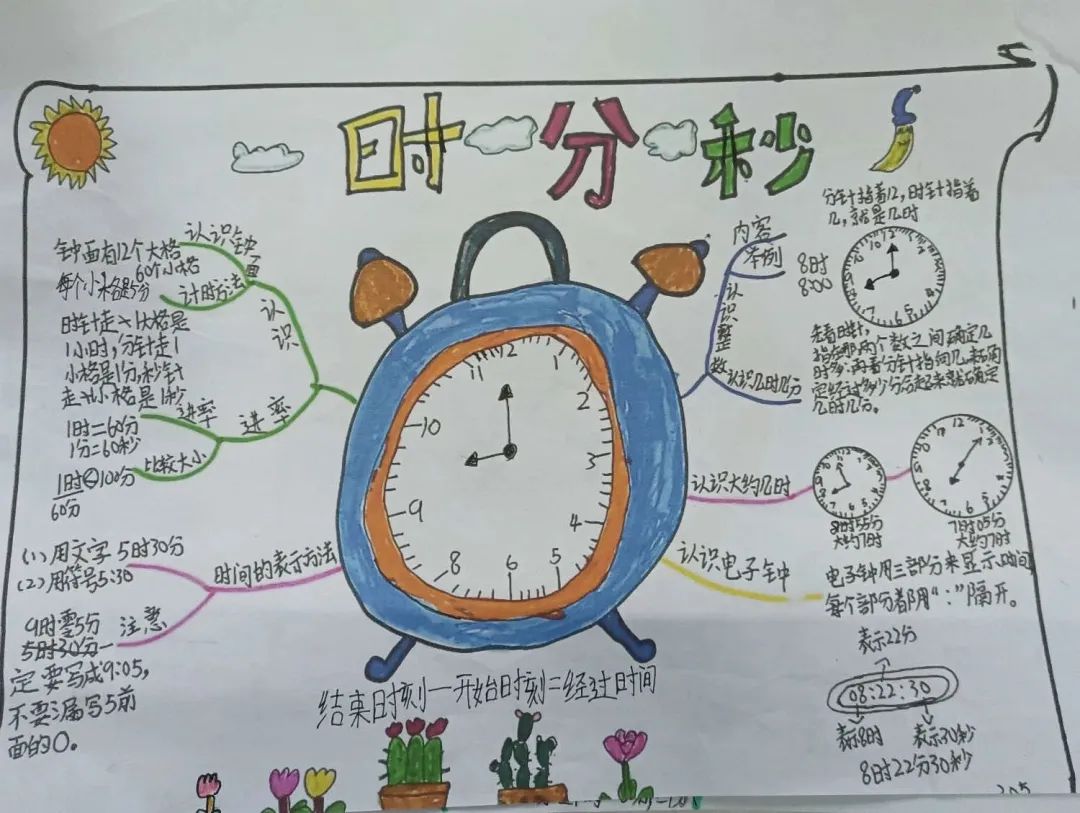 时分秒
认识钟面
钟面有12个大格
60个小格
每个小格是5分
计时方法
时针走1大格是
1小时,分针走1
小格是1分,秒针
走1小格是1秒
认识
进率
进率
1时=60分
1分=60秒
比较大小
1时<100分
60分
时间的表示方法
(1)用文字 5时30分
(2)用符号5:30
注意
9时零5分
5时30分一
定要写成9:05,
不要漏写5前
面的0。
11
12
2
10
3
9
4
8
6
5
结束时刻一开始时刻=经过时间
内容
举例
认识整
数
认识几时几分
分针指着12,时针指着
几,就是几时
8时
8:00
先看时针,
指在哪两个数之间确定几
时多,再看分针指向几,来确
定经过多少分合起来就确定
几时几分。
认识大约几时
7时05分
大约7时
认识电子钟
电子钟用三部分来显示时间
每个部分都用“:”隔开。
表示22分
08:22:30
表示8时
表示30秒
8时22分30秒